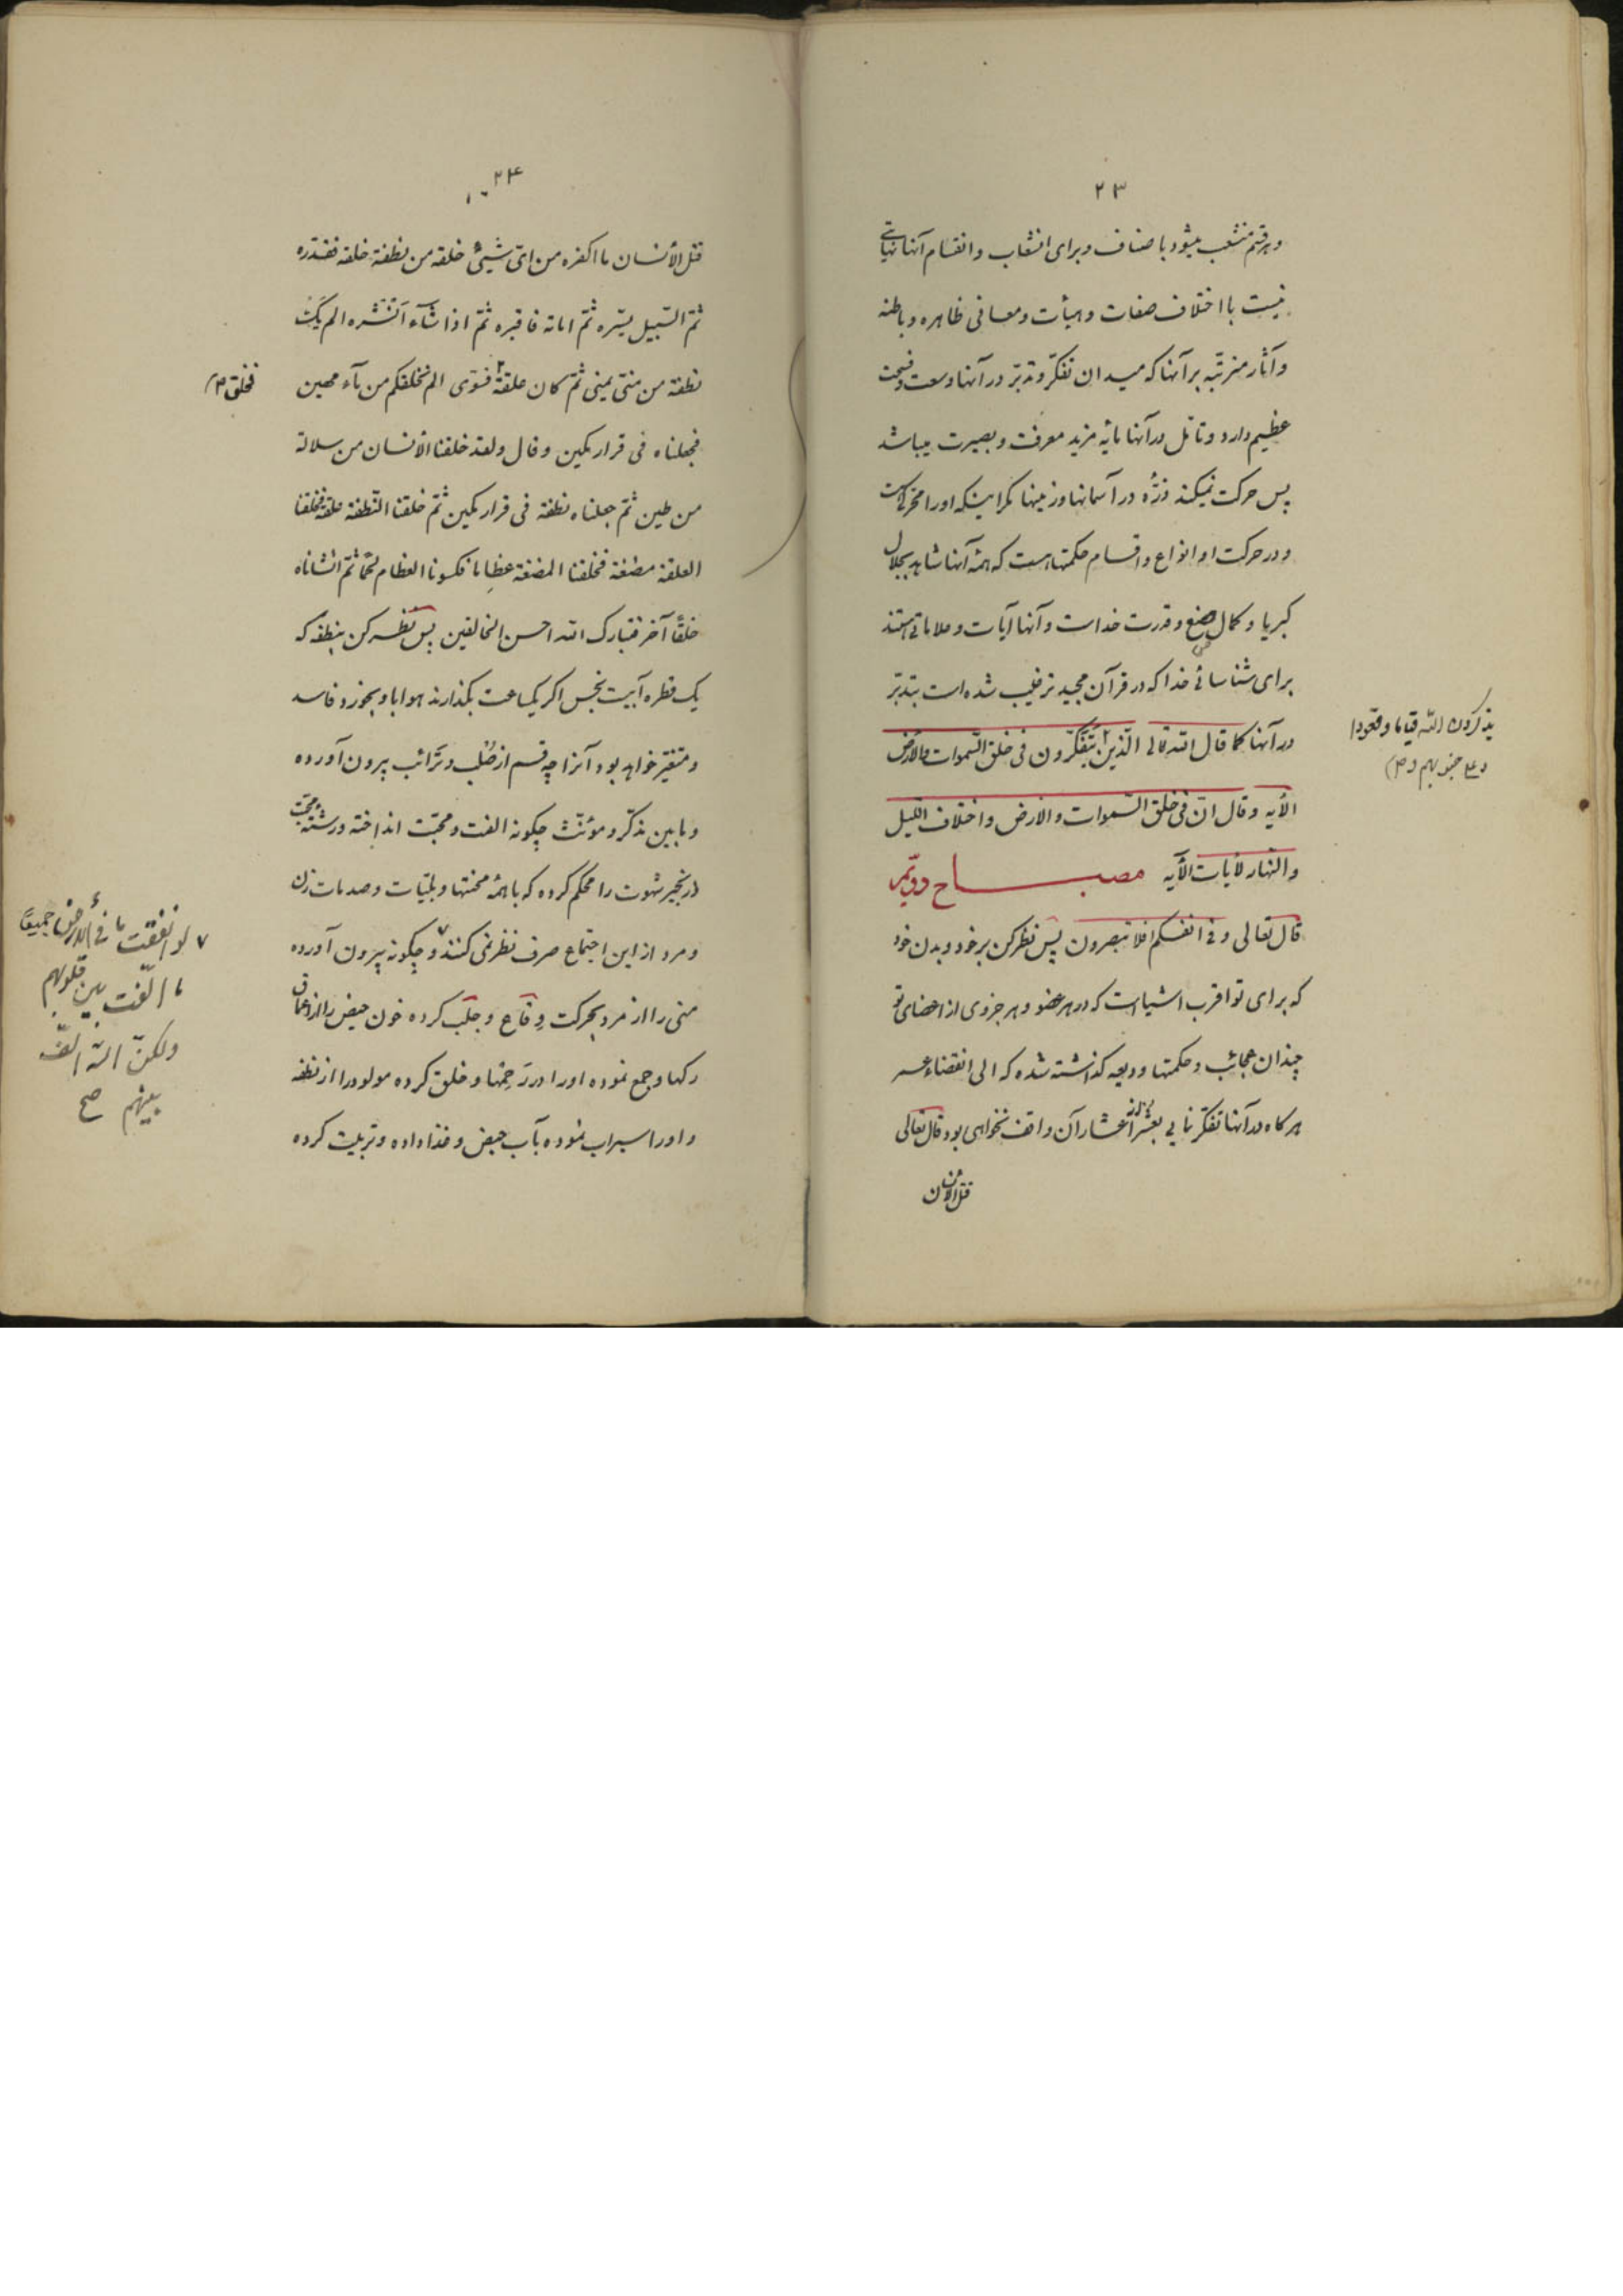 ۲۳
و هر قسم منشعب میشود باصناف و برای انشعاب و انقسام آنها نهایتی
نیست با اختلاف صفات و هیأت و معانی ظاهره و باطنه
و آثار مترتّبه بر آنها که میدان تفکّر و تدبّر در آنها وسعت و فسحت
عظیم دارد و تأمّل در آنها مایه مزید معرفت و بصیرت میباشد
پس حرکت نمیکند ذرّه در آسمانها و زمینها مکر اینکه او را محرّکی است
و در حرکت او انواع و اقسام حکمتها است که همه آنها شاهد بجلال
کبریا و کمال صنع و قدرت خداست و آنها آیات و علاماتی هستند
برای شناسائی خدا که در قرآن مجید ترغیب شده است بتدبّر
در آنها کما قال الله تعالی الّذین یتفکّرون فی خلق السّموات والأرض
یذکرون الله قیاما و قعودا
و علی جنوبهم و صح
الأیه و قال انّ فی خلق السّموات و الارض و اختلاف اللّیل
و النّهار لأیات الأیه مصباح دویّم
قال تعالی و فی انفسکم افلا تبصرون پس نظر کن بر خود و بدن خود
که برای تو اقرب اشیا است که در هر عضو و هر جزوی از اعضای تو
چندان عجائب و حکمتها ودیعه کذاشته شده که الی انقضاء عمر
هر کاه در آنها تفکّر نمایی بعشر اعشار آن واقف نخواهی بود قال تعالی
قتل الأنسان
۲۴
قتل الأنسان ما اکفره من ایّ شیئ خلقه من نطفة خلقه فقدّره
ثمّ السّبیل یسّره ثمّ اماته فاقبره ثمّ اذا شآء انشره الم یک
نطفة من منیّ یمنی ثمّ کان علقة فسوّی الم نخلقکم من مآء مهین
فخلق صح
فجعلناه فی قرار مکین و قال و لقد خلقنا الأنسان من سلالة
من طین ثمّ جعلناه نطفة فی قرار مکین ثمّ خلقنا النّطفة علقة فخلقنا
العلقة مضغة فخلقنا المضغة عظاما فکسونا العظام لحما ثمّ انشاناه
خلقًا آخر فتبارک الله احسن الخالقین پس نظر کن بنطفه که
یک قطره آبیست نجس اکر یکساعت بکذارند هوا باو بخورد فاسد
و متغیّر خواهد بود آنرا چه قسم از صلب و ترائب بیرون آورده
و مابین مذکّر و مؤنّث چکونه الفت و محبّت انداخته و رشته محبّت
و زنجیر شهوت را محکم کرده که با همه محنتها و بلیّات و صدمات زن
و مرد از این اجتماع صرف نظر نمی کنند ۷ و چکونه بیرون آورده
۷ لو انفقت ما فی الأرض جمیعًا
ما الّفت بین قلوبهم
ولکنّ الله الّف
بینهم صح
منی را از مرد بحرکت وقاع و جلب کرده خون حیض را از اعماق
رکها و جمع نموده او را در رحمها و خلق کرده مولود را از نطفه
و او را سیراب نموده بآب حیض و غذا داده و تربیت کرده